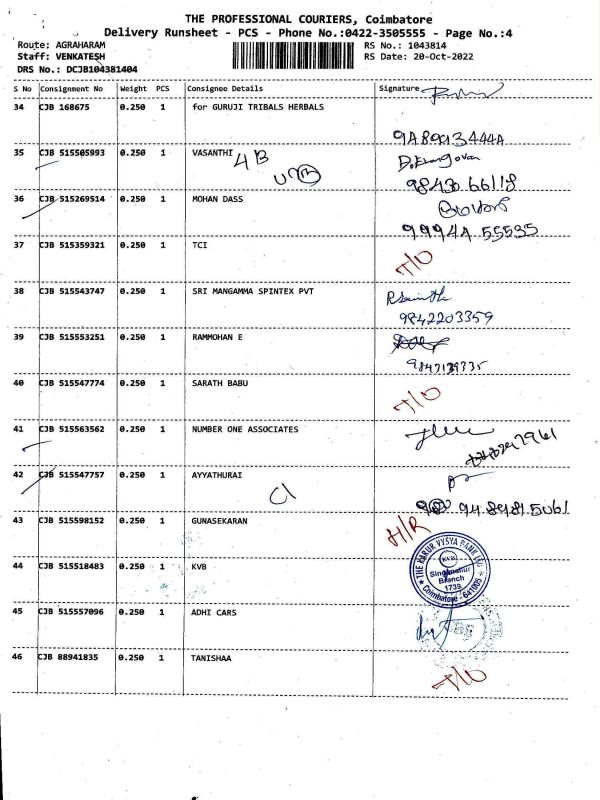 THE PROFESSIONAL COURIERS, Coimbatore
Delivery Runsheet - PCS - Phone No.:0422-3505555 - Page No.:4
Route: AGRAHARAM RS No.: 1043814
Staff: VENKATESH RS Date: 20-Oct-2022
DRS No.: DCJB104381404
S No Consignment No Weight PCS Consignee Details Signature
34 CJB 168675 0.250 1 for GURUJI TRIBALS HERBALS
35 CJB 515505993 0.250 1 VASANTHI
4B
98430 66118
36 CJB 515269514 0.250 1 MOHAN DASS
99944 55535
37 CJB 515359321 0.250 1 TCI
T/O
38 CJB 515543747 0.250 1 SRI MANGAMMA SPINTEX PVT
9842203359
39 CJB 515553251 0.250 1 RAMMOHAN E
40 CJB 515547774 0.250 1 SARATH BABU
T/O
41 CJB 515563562 0.250 1 NUMBER ONE ASSOCIATES
42 CJB 515547757 0.250 1 AYYATHURAI
43 CJB 515598152 0.250 1 GUNASEKARAN
H/R
44 CJB 515518483 0.250 1 KVB
THE KARUR VYSYA BANK LTD.
KVB
Singanallur
Branch
1739
Coimbatore - 641005
45 CJB 515557096 0.250 1 ADHI CARS
46 CJB 88941835 0.250 1 TANISHAA
T/O